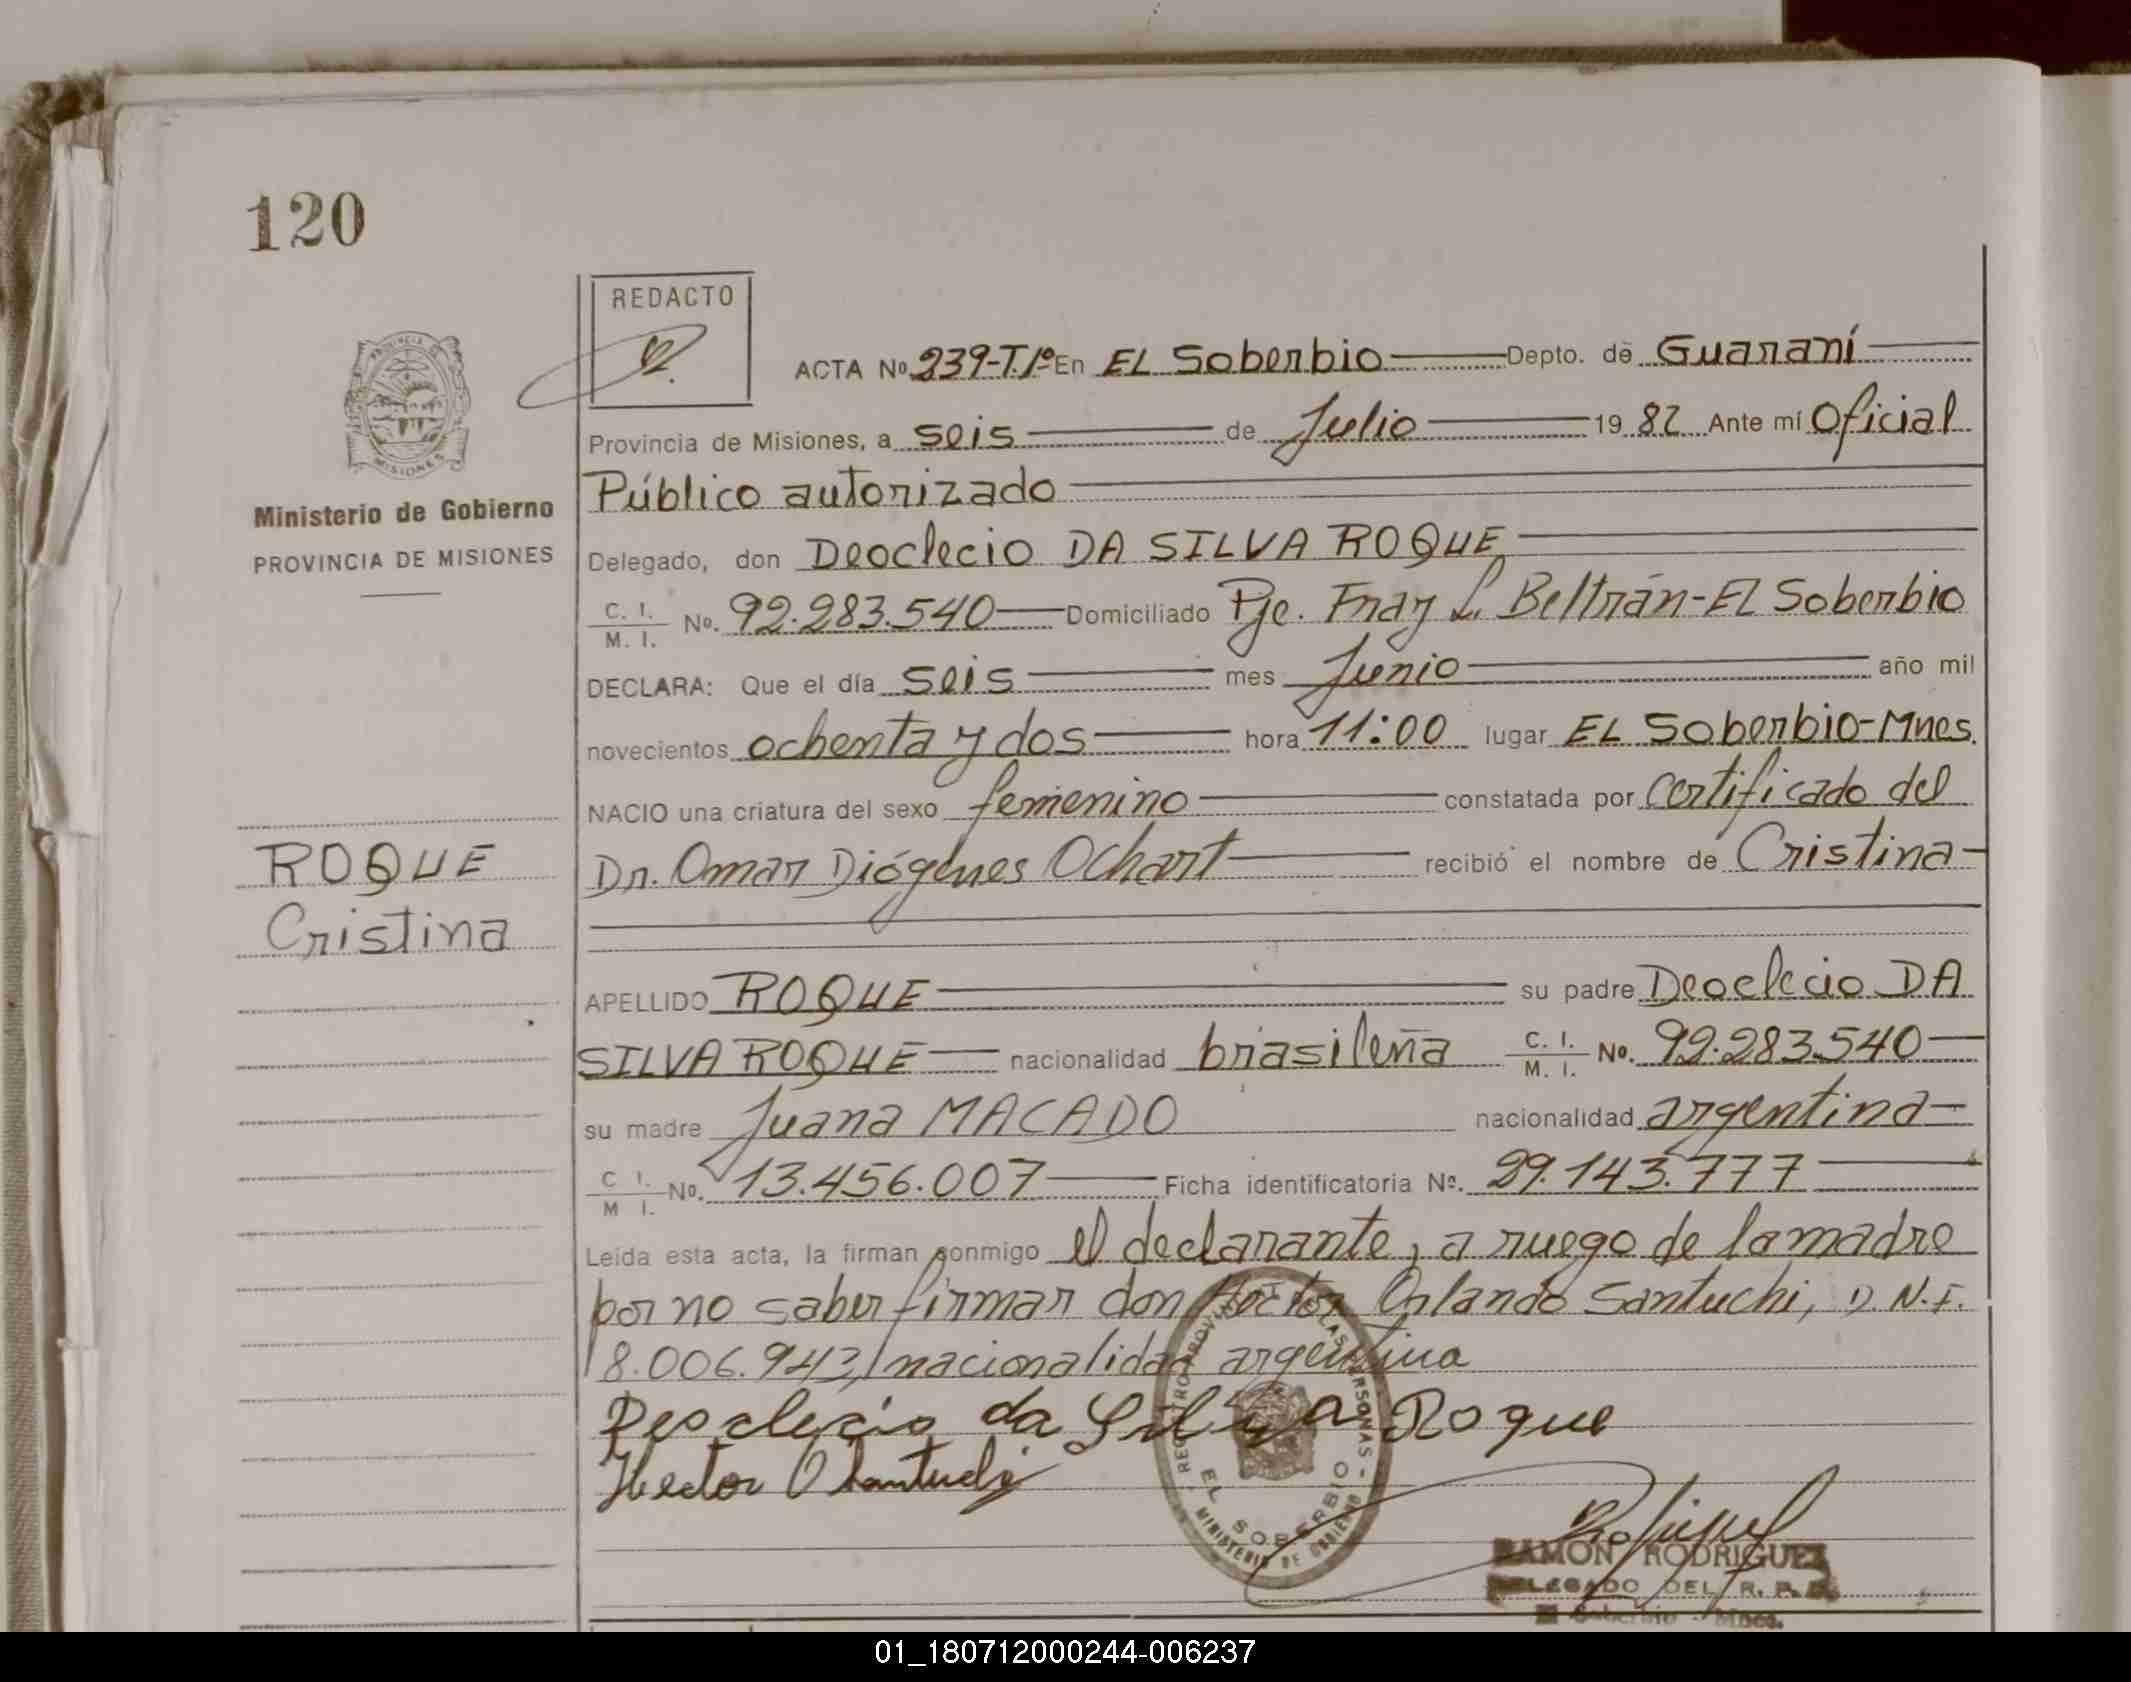 120
REDACTO
PROVINCIA DE
MISIONES
Ministerio de Gobierno
PROVINCIA DE MISIONES
ROQUE
Cristina
ACTA Nº 239-T.1º En EL Soberbio Depto. de Guaraní
Provincia de Misiones, a seis de Julio 19 82 Ante mí Oficial
Público autorizado
Delegado, don Deoclecio DA SILVA ROQUE
C. I. / M. I. Nº. 92.283.540 Domiciliado Pje. Fray L. Beltrán-El Soberbio
DECLARA: Que el día seis mes Junio año mil
novecientos ochenta y dos hora 11:00 lugar EL Soberbio-Mnes.
NACIO una criatura del sexo femenino constatada por certificado del
Dr. Omar Diógenes Ochart recibió el nombre de Cristina
APELLIDO ROQUE su padre Deoclecio DA
SILVA ROQUE nacionalidad brasileña C. I. / M. I. Nº. 92.283.540
su madre Juana MACADO nacionalidad argentina
C I. / M I. Nº. 13.456.007 Ficha identificatoria Nº. 29.143.777
Leída esta acta, la firman conmigo el declarante, a ruego de la madre
por no saber firmar don Hector Orlando Santuchi, D.N.I.
8.006.943, nacionalidad argentina
Deoclecio da Silva Roque
Hector O Santuchi
REGISTRO PROVINCIAL DE LAS PERSONAS -
EL SOBERBIO
MINISTERIO DE GOBIERNO
RAMON RODRIGUEZ
DELEGADO DEL R. P. P.
El Soberbio - Mnes.
01_180712000244-006237